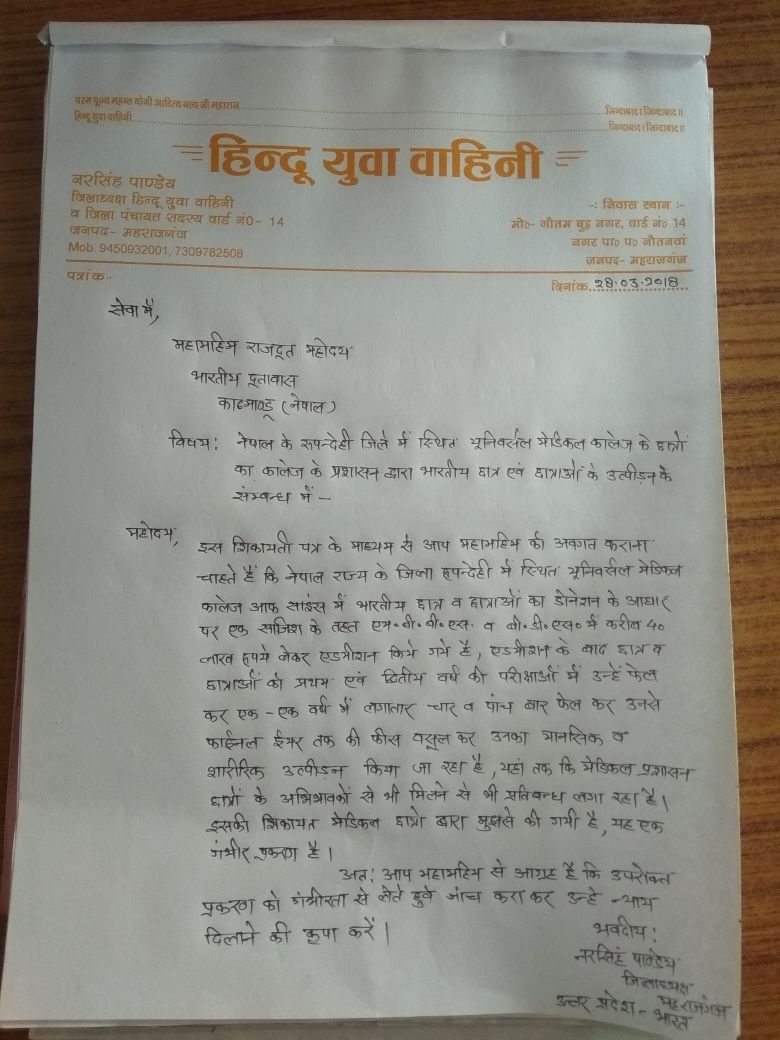 परम पूज्य महन्त योगी आदित्य नाथ जी महाराज........................जिन्दाबाद। जिन्दाबाद॥
हिन्दू युवा वाहिनी........................जिन्दाबाद। जिन्दाबाद॥
हिन्दू युवा वाहिनी
नरसिंह पाण्डेय
जिलाध्यक्ष हिन्दू युवा वाहिनी
व जिला पंचायत सदस्य वार्ड नं0- 14
जनपद- महराजगंज
Mob. 9450932001, 7309782508
-: निवास स्थान :-
मो०- गौतम बुद्ध नगर, वार्ड नं० 14
नगर पा० प० नौतनवां
जनपद- महराजगंज
पत्रांक-
दिनांक. 28.03.2018
सेवा में,
महामहिम राजदूत महोदय
भारतीय दूतावास
काठमाण्डू (नेपाल)
विषय: नेपाल के रूपन्देही जिले में स्थित यूनिवर्सल मेडिकल कालेज के छात्रों
का कालेज के प्रशासन द्वारा भारतीय छात्र एवं छात्राओं के उत्पीड़न के
सम्बन्ध में –
महोदय,
इस शिकायती पत्र के माध्यम से आप महामहिम को अवगत कराना
चाहते हैं कि नेपाल राज्य के जिला रूपन्देही में स्थित यूनिवर्सल मेडिकल
कालेज आफ साइंस में भारतीय छात्र व छात्राओं का डोनेशन के आधार
पर एक साजिश के तहत एम०बी०बी०एस० व बी०डी०एस० में करीब 40
लाख रूपये लेकर एडमीशन किये गये है, एडमीशन के बाद छात्र व
छात्राओं को प्रथम एवं द्वितीय वर्ष की परीक्षाओं में उन्हें फेल
कर एक-एक वर्ष में लगातार चार व पांच बार फेल कर उनसे
फाईनल ईयर तक की फीस वसूल कर उनका मानसिक व
शारीरिक उत्पीड़न किया जा रहा है, यहां तक कि मेडिकल प्रशासन
छात्रों के अभिभावकों से भी मिलने से भी प्रतिबन्ध लगा रखा है।
इसकी शिकायत मेडिकल छात्रो द्वारा मुझसे की गयी है, यह एक
गंभीर प्रकरण है।
अत: आप महामहिम से आग्रह है कि उपरोक्त
प्रकरण को गंभीरता से लेते हुवे जांच करा कर उन्हे न्याय
दिलाने की कृपा करें।
भवदीय:
नरसिंह पाण्डेय
जिलाध्यक्ष
महराजगंज
उत्तर प्रदेश - भारत